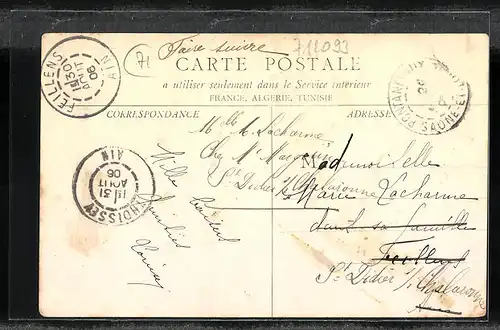 Faire suivre
71
711093
CARTE POSTALE
a utiliser seulement dans le Service intérieur
FRANCE, ALGERIE, TUNISIE
CORRESPONDANCE
ADRESSE
FEILLENS
AIN
30
AOUT
06
SAONE-ET
THOISSEY
AIN
31
AOUT
06
Mille
M. Lacharme
Chez Mr
St Didier s/ Chalaronne
Mademoiselle
Marie Lacharme
dans sa famille
Feillens
St Didier s/ Chalaronne
Ain